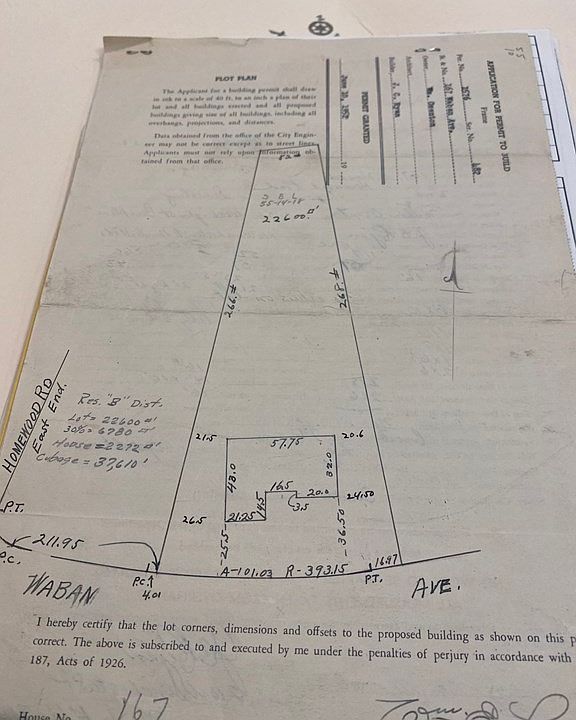 PLOT PLAN
The Applicant for a building permit shall draw
in ink to a scale of 40 ft. to an inch a plan of their
lot and all buildings erected and all proposed
buildings giving size of all buildings, including all
overhangs, projections, and distances.
Data obtained from the office of the City Engin-
eer may not be correct except as to street lines.
Applicants must not rely upon information ob-
tained from that office.
5 5
10
APPLICATION FOR PERMIT TO BUILD
Frame
Per. No.
St. & No. 167 Waban Ave.
Owner,
Architect,
Builder,
PERMIT GRANTED
19
S B L
55-14-18
22600
266.
268.
HOMEWOOD RD
East End.
Res. "B" Dist.
Lot = 22600
30% = 6780
House = 2272
Cubage = 37,610
21.5
57.75
20.6
43.0
32.0
16.5
20.0
24.50
3.5
14.5
26.5
21.25
25.5
36.50
P.T.
211.95
P.C.
A-101.03 R-393.15
16.97
P.T.
P.C.
4.01
WABAN
AVE.
I hereby certify that the lot corners, dimensions and offsets to the proposed building as shown on this p
correct. The above is subscribed to and executed by me under the penalties of perjury in accordance with
187, Acts of 1926.
House No. 167